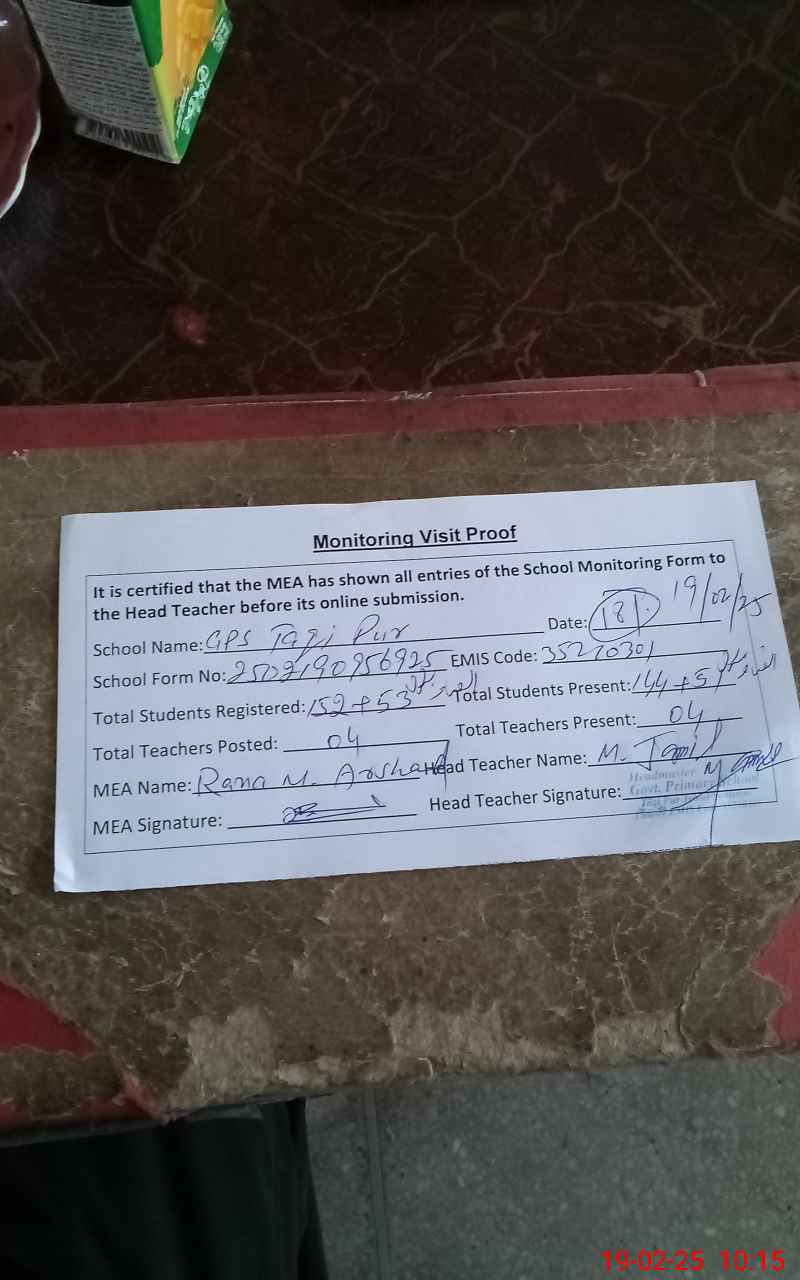 Monitoring Visit Proof
It is certified that the MEA has shown all entries of the School Monitoring Form to
the Head Teacher before its online submission.
School Name: GPS Tagi Pur Date: 18/. 19/02/25
School Form No: 2502190956925 EMIS Code: 35220301
Total Students Registered: 152+53 Total Students Present: 144+51
Total Teachers Posted: 04 Total Teachers Present: 04
MEA Name: Rana M. Arshad Head Teacher Name: M. Jamil
MEA Signature: Head Teacher Signature:
Headmaster
Govt. Primary School
19-02-25 10:15